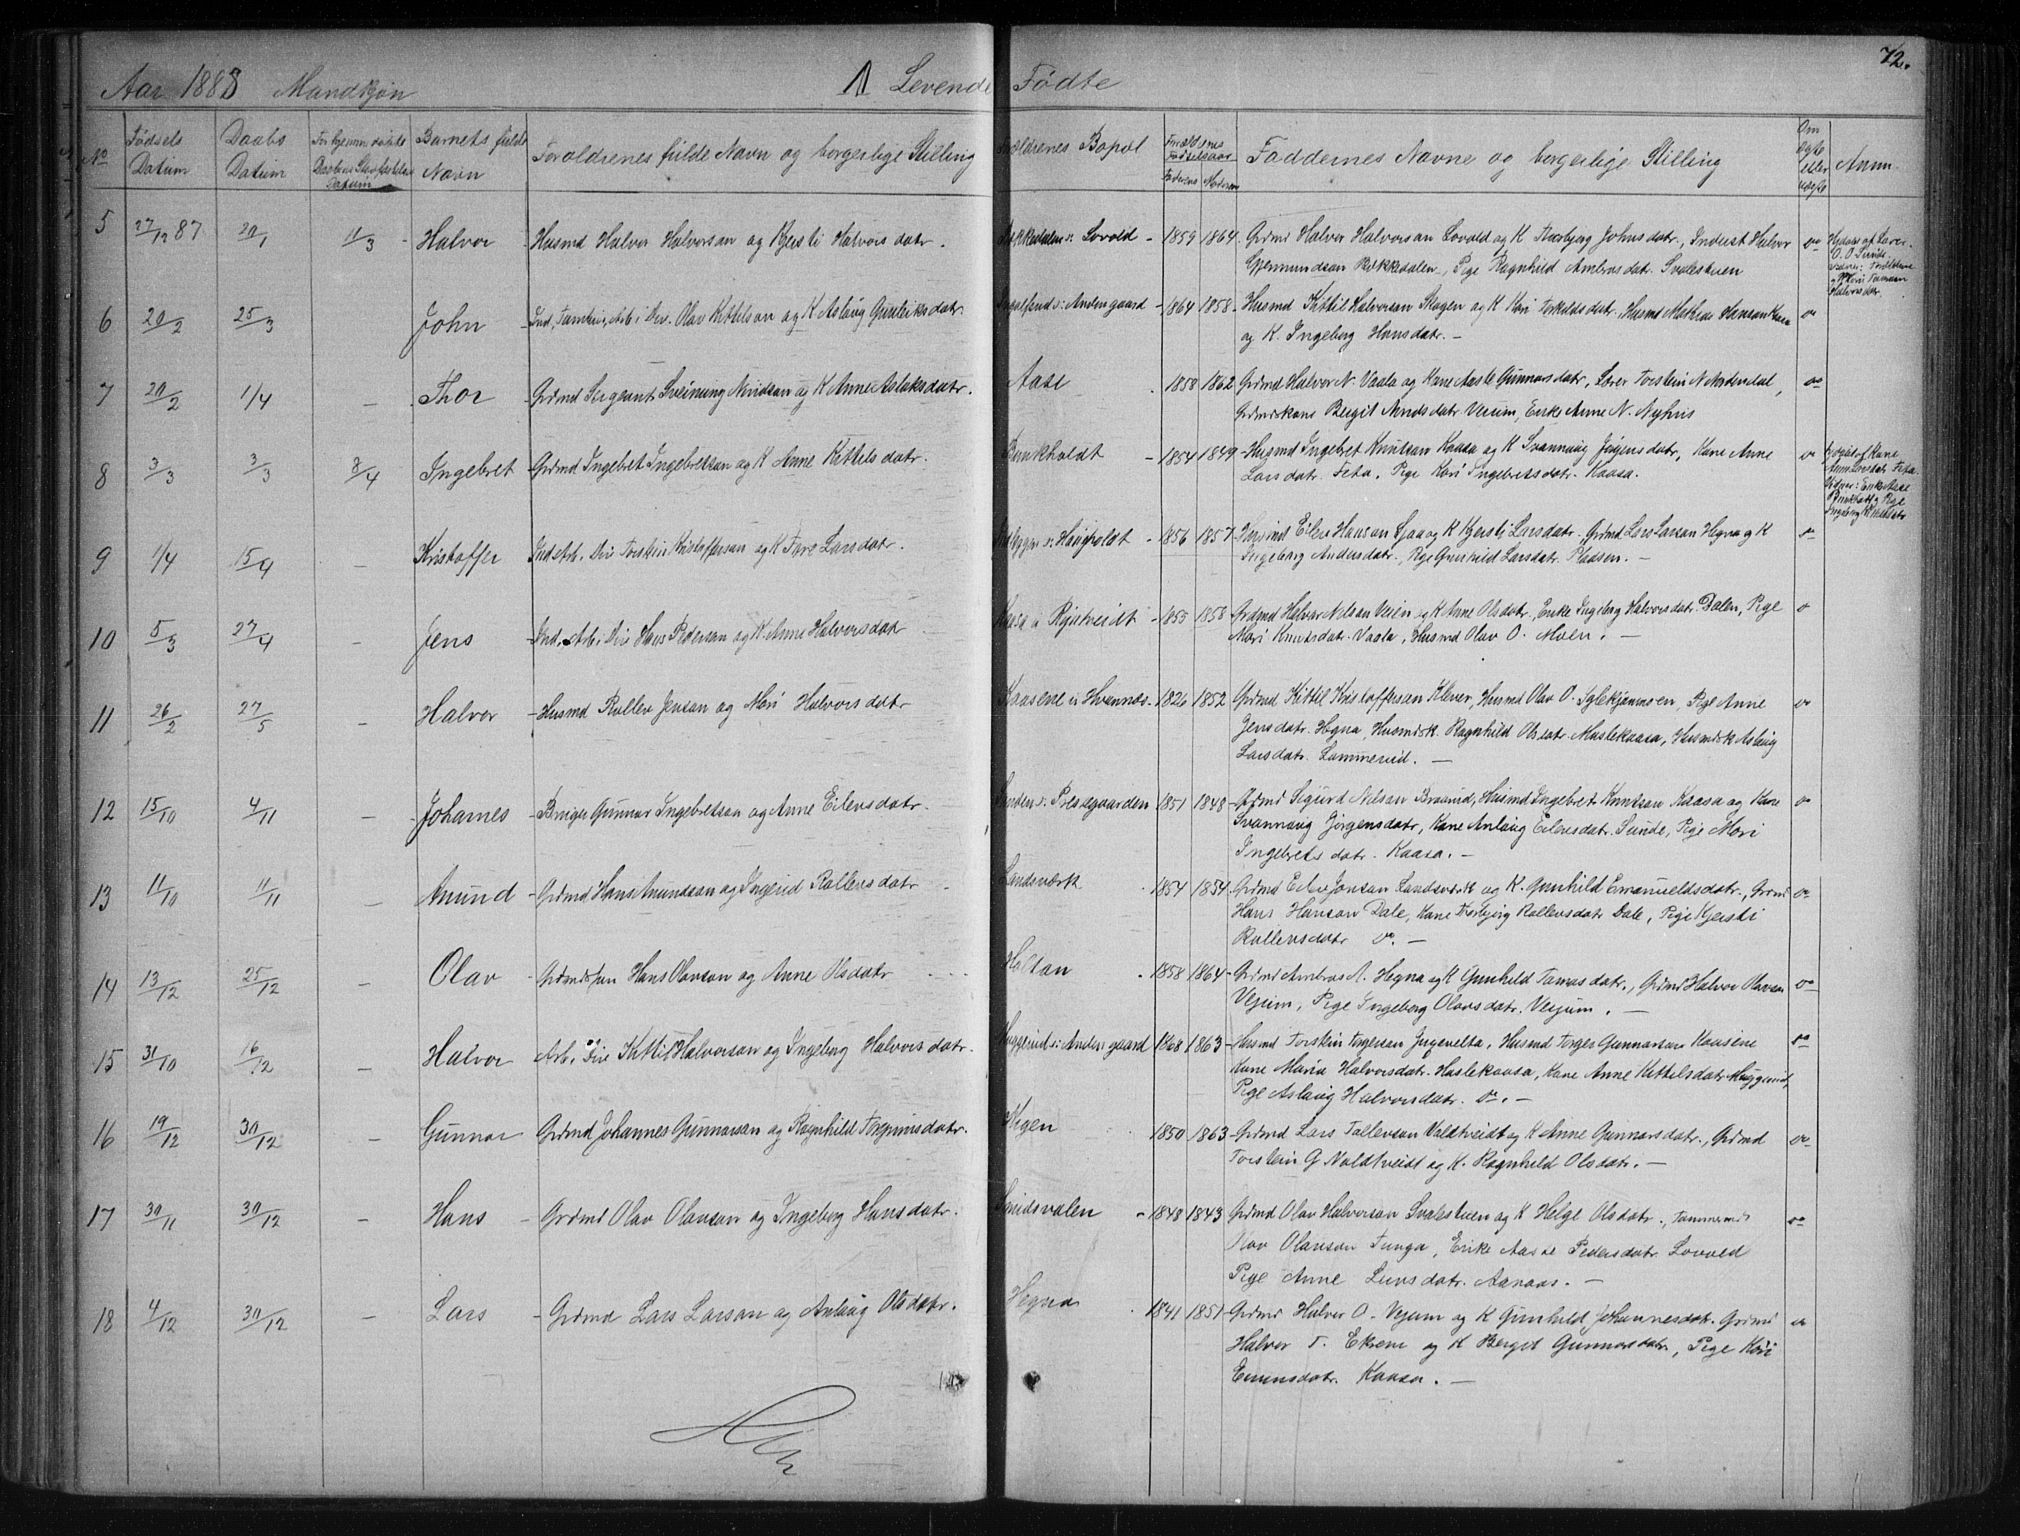 Aar 1888 Mandkjøn 1 Levende Fødte 72.
No Fødsels Datum Daabs Datum Barnets fulde Navn Forældrenes fulde Navn og borgerlige Stilling Forældrenes Bopæl Faddernes Navne og borgerlige Stilling Anm.
5 27/12 87 20/1 11/3 Halvor Husmd Halvor Halvorsan og Kjersti Halvorsdatr. Lovold 1859 1864 Grdmd Halvor Halvorsan Lovold og K. Thorbjørg Johnsdatr., Inderst Halvor
Gjermundsan Bekkedalen, Pige Ragnhild Ambrosdatr. Svalestuen
6 20/2 25/3 John Olav Kittilsan og K Aslaug Gunleiksdatr. Andengaard 1864 1858 Husmd Kittil Halvorsan Skogen og K Kari Torkildsdatr., Husmd Mathias Hansan
og K. Ingeborg Hansdatr. —
7 20/2 1/4 — Thor Grdmd Sergeant Sveinung Arvidsan og K Anne Aslaksdatr. Aase 1858 1862 Grdmd Halvor N. Vaala og Kone Aasle Gunnarsdatr, Lærer Torstein N. Nordendal,
Grdmdskone Bergit Arvidsdatr Veium, Enke Anne N. Nyhus
8 3/3 3/3 8/4 Ingebret Grdmd Ingebret Ingebretsan og K Anne Kittilsdatr. Bunkholdt 1854 1849 Husmd Ingebret Knutsan Kaasa og K Svannaug Jørgensdatr, Kone Anne
Larsdatr. Feta, Pige Kari Ingebretsdatr. Kaasa.
9 1/4 15/4 — Kristoffer Ind. Arb. Div Torstein Kristoffersan og K Taro Larsdatr. Haugholdt 1856 1857 Eilev Hansan Sjaa og K Kjersti Larsdatr., Grdmd Lars Larsan Hegna og K
Ingeborg Andersdatr., Pige Gunhild Larsdatr. Pladsen. —
10 5/3 27/4 — Jens Ind. Arb. Div Hans Pedersan og K. Anne Halvorsdatr 1855 1858 Grdmd Halvor Nilsan Veien og K Anne Olsdatr., Enke Ingeborg Halvorsdatr. Dalen, Pige
Mari Knutsdatr. Vaala, Husmd Olav O. Moen. —
11 26/2 27/5 — Halvor Husmd Rollev Jensan og Mari Halvorsdatr Kaasene 1826 1852 Grdmd Kittil Kristoffersan Klever, Husmd Olav O. Iglekjønnmoen, Pige Anne
Jensdatr. Hegna, Husmdsk. Ragnhild Olsdatr. Haslekaasa, Husmdsk Aslaug
Larsdatr. Lammerud. —
12 15/10 4/11 — Johannes Bruger Gunnar Ingebretsan og Anne Eilevsdatr. Præstgaarden 1851 1848 Grdmd Sigurd Nilsan Braarud, Husmd Ingebret Knutsan Kaasa og Kone
Svannaug Jørgensdatr, Kone Anlaug Eilevsdatr. Sunde, Pige Mari
Ingebretsdatr. Kaasa. —
13 11/10 11/11 — Amund Grdmd Hans Amundsan og Ingerid Rollevsdatr Landsværk 1854 1854 Grdmd Eilev Jonsan Landsværk og K. Gunhild Emanuelsdatr., Grdmd
Hans Hansan Dale, Kone Thorbjørg Rollevsdatr Dale, Pige Kjersti
Rollevsdatr do. —
14 13/12 25/12 — Olav Hans Olavsan og Anne Olsdatr Holtan 1858 1864 Grdmd Ambros A. Hegna og K Gunhild Tamasdatr., Grdmd Halvor Olavsan
Vejum, Pige Ingeborg Olavsdatr. Vejum. —
15 31/10 16/12 — Halvor Arb. i Div Kittil Halvorsan og Ingeborg Halvorsdatr. Haggerud i Andengaard 1868 1863 Husmd Torstein Torgersan Jngevelta, Husmd Torger Gunnarsan Kaasene
Kone Maria Halvorsdatr. Haslekaasa, Kone Anne Kittilsdatr Haggerud,
Pige Aslaug Halvorsdatr. do. —
16 19/12 30/12 — Gunnar Grdmd Johannes Gunnarsan og Ragnhild Torgrimsdatr. 1850 1863 Grdmd Lars Tallevsan Valdtveidt og K Anne Gunnarsdatr., Grdmd
Torstein G Valdtveidt og K. Ragnhild Olsdatr. —
17 30/11 30/12 — Hans Grdmd Olav Olavsan og Ingeborg Hansdatr. Smidsvalen 1848 1843 Grdmd Olav Halvorsan Svalestuen og K Helge Olsdatr., Tømmermd
Olav Olavsan Tunga, Enke Aasle Pedersdatr Lovold
Pige Anne Larsdatr. Aanaas. —
18 4/12 30/12 — Lars Grdmd Lars Larsan og Anlaug Olsdatr. Hegna 1841 1851 Grdmd Halvor O. Vejum og K Gunhild Johannesdatr. Grdmd
Halvor T. Ekrene og K Berget Gunnarsdatr, Pige Kari
Emunsdatr. Kaasa. —